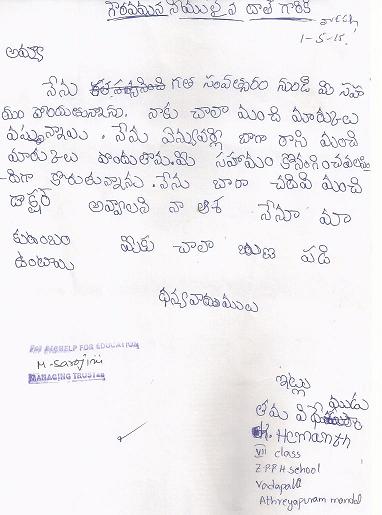 గౌరవమైన
1-5-15.
అమ్మా
నేను గత సంవత్సరం నుండి మి సహ
యం పొందుతున్నాను. నాకు చాలా మంచి మార్కులు
వస్తున్నాయి. నేను బాగా రాసి మంచి
మార్కులు సహాయం
-దిగా కోరుతున్నాను. నేను చారా చదివి మంచి
డాక్టర్ అవ్వాలని నా ఆశ నేనూ మా
కుటుంబం మీకు చాలా ఋణ పడి
ఉంటాయి
ధన్యవాదములు
FOR HELP FOR EDUCATION
M-Sarojini
MANAGING TRUSTEE
ఇట్లు
తమ
Hemanth
VII class
Z.P.P.H school
Vadapalli
Athreyapuram mandal